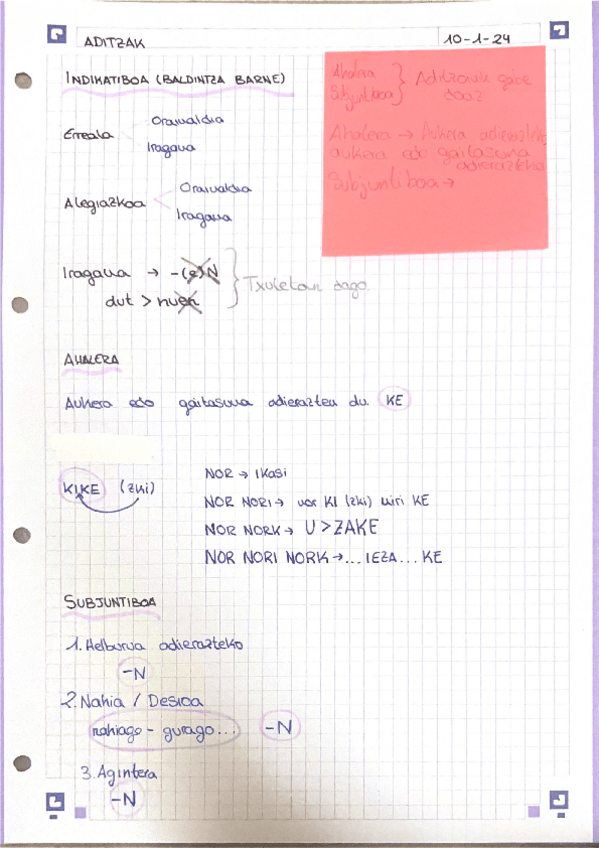 ADITZAK
10-1-24
INDIKATIBOA (BALDINTZA BARNE)
Erreala
Orainaldia
Iragana
Alegiazkoa
Orainaldia
Iragana
Iragana → -(e)N
dut > nuen
Txuletan dago.
Ahalera
Subjuntiboa
Aditzoinik gabe
doaz
Ahalera → Aukera adierazteko,
aukera edo gaitasuna
adierazteko
Subjuntiboa →
AHALERA
Aukera edo gaitasuna adierazten du KE
KIKE (zki)
NOR → Ikasi
NOR NORI → nor KI (zki) niri KE
NOR NORK → U > ZAKE
NOR NORI NORK → ... IEZA ... KE
SUBJUNTIBOA
1. Helburua adierazteko
-N
2. Nahia / Desioa
nahiago - gurago... -N
3. Agintera
-N